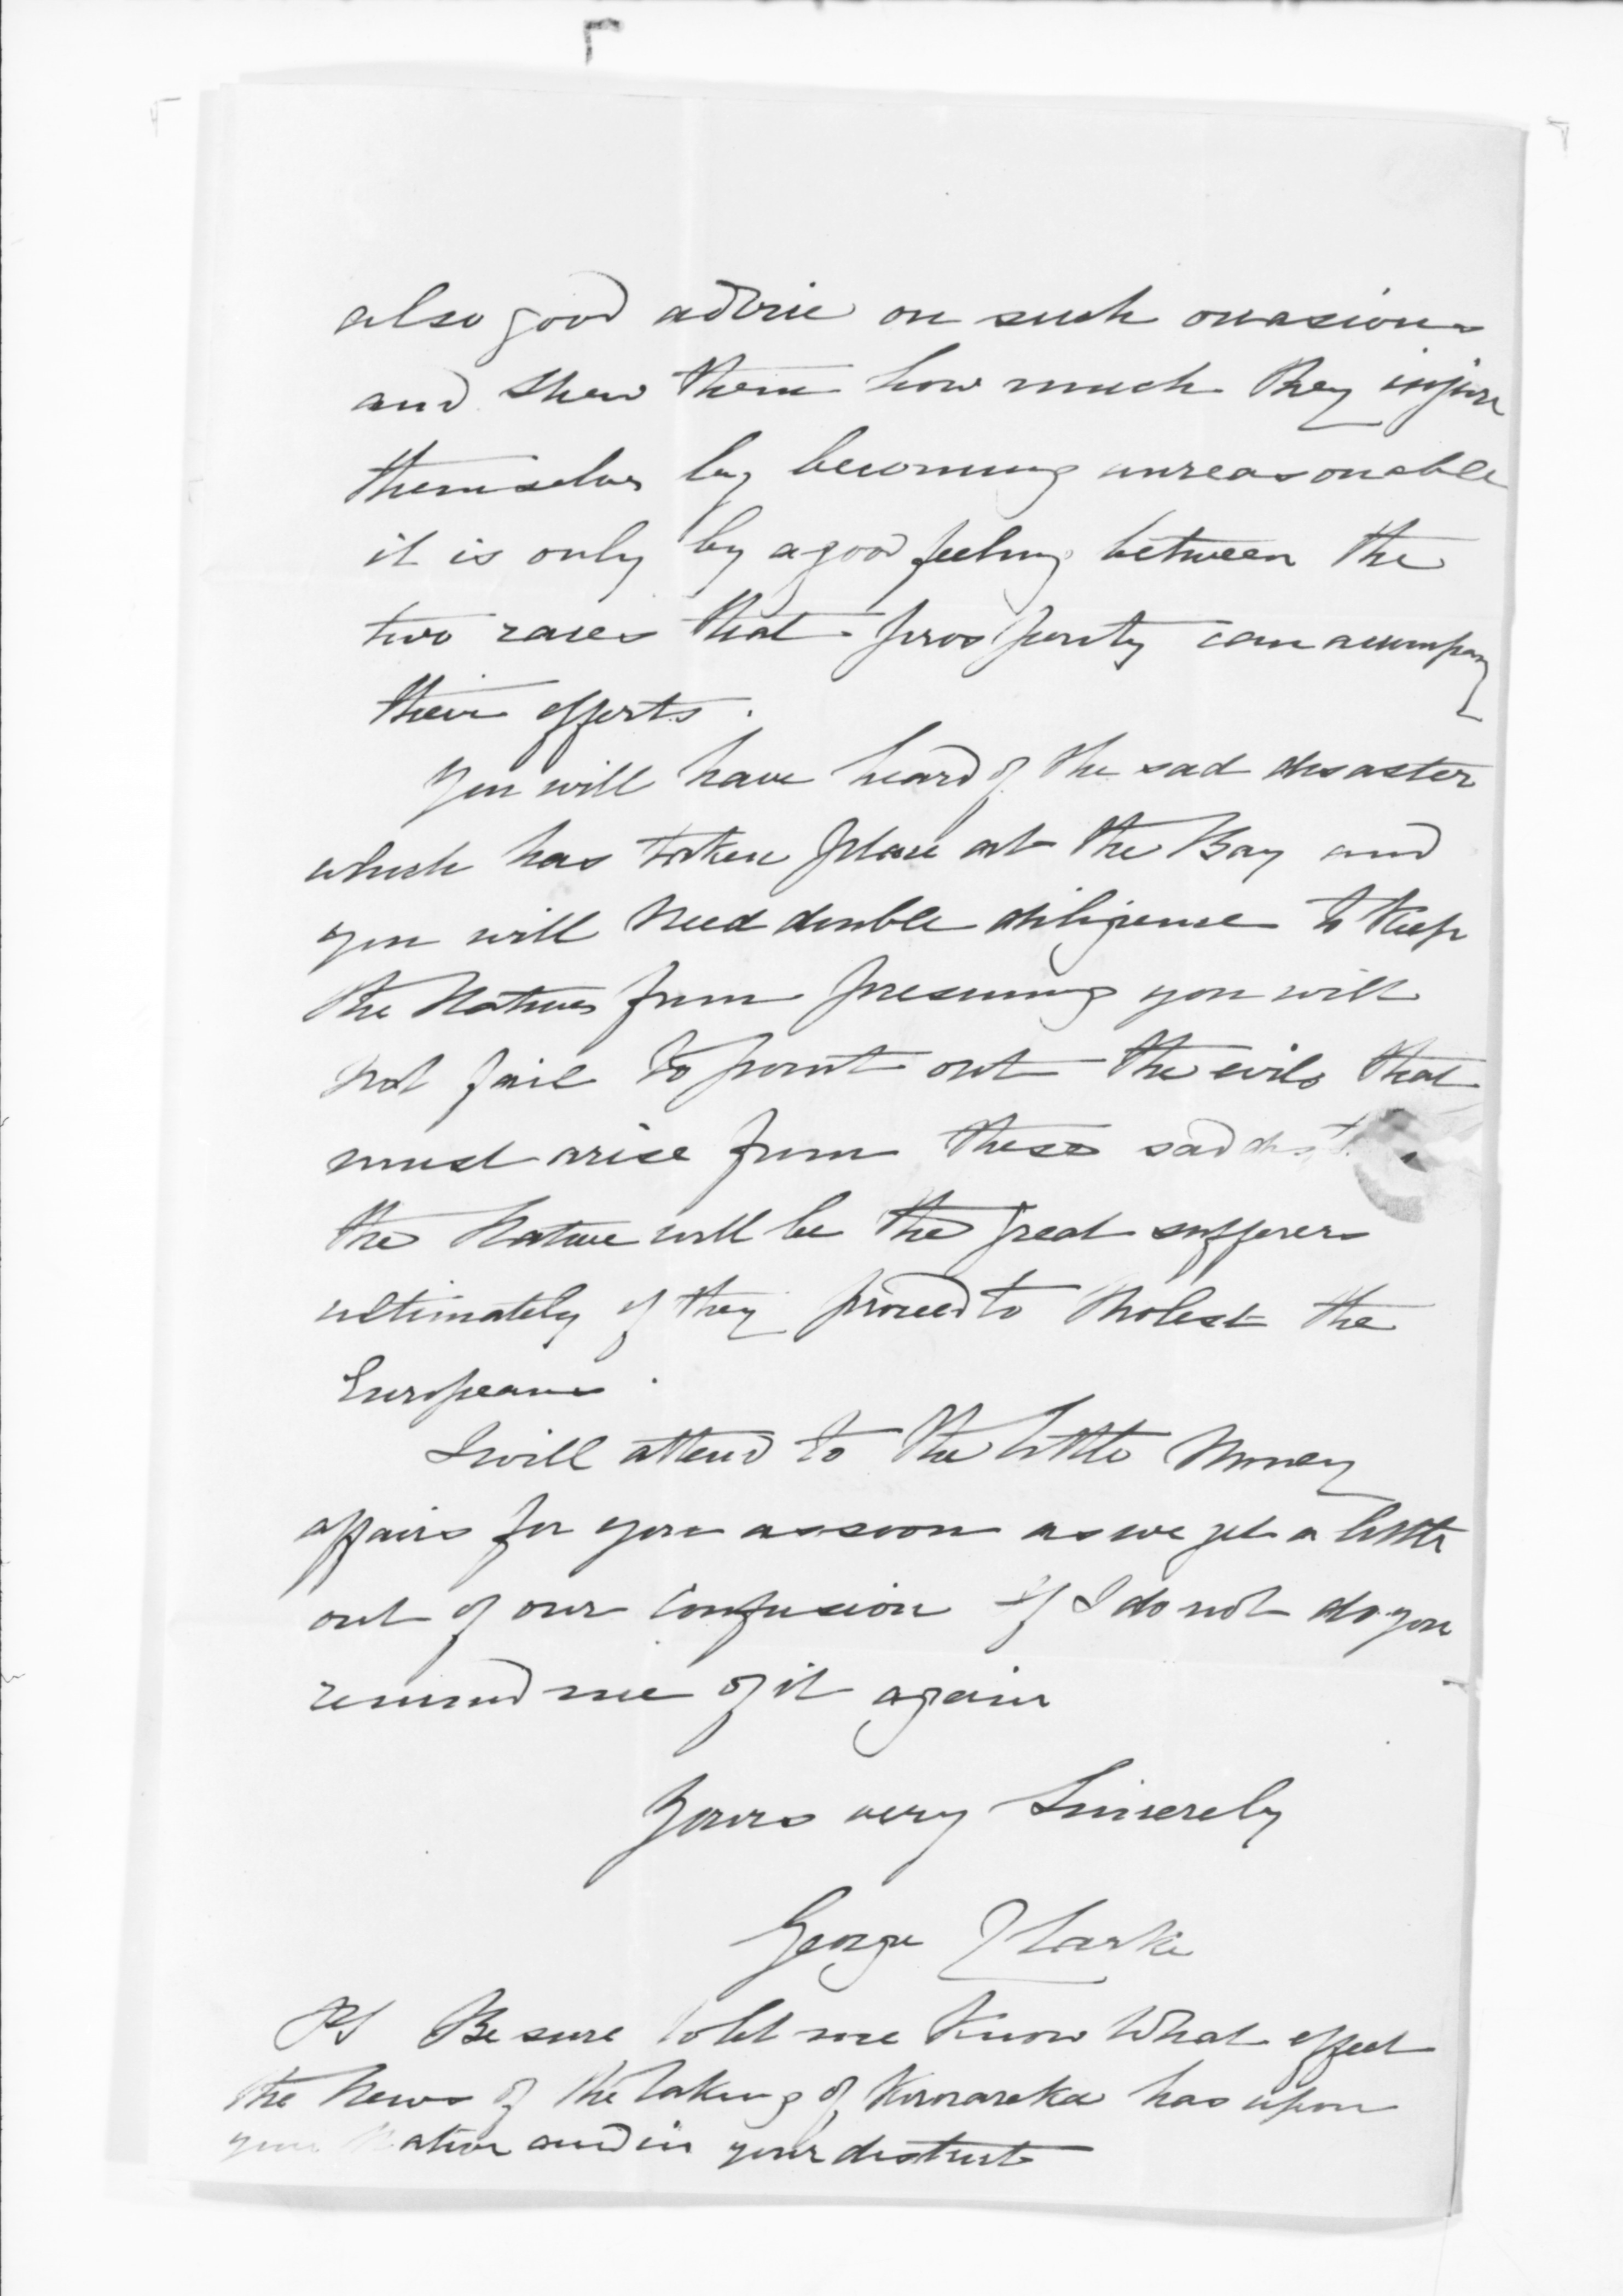 also good advice on such occasions
and shew them how much they injure
themselves by becoming unreasonable
it is only by a good feeling between the
two races that prosperity can accompany
their efforts.
You will have heard of the sad disaster
which has taken place at the Bay and
you will need double diligence to keep
the Natives from presuming you will
not fail to point out the evils that
must arise from these sad
the Native will be the great sufferers
ultimately if they proceed to molest the
Europeans.
I will attend to the little Money
affairs for you as soon as we get a little
out of our confusion if I do not do you
remind me of it again
Yours very Sincerely
George Clarke
PS Be sure to let me know what effect
the News of the taking of Kororareka has upon
your Native and in your district